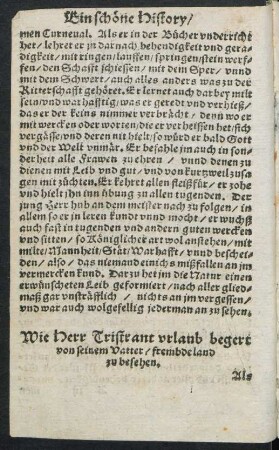 Ein schöne History/
men Curneual. Als er in der Bücher vnderricht
het / lehret er zu darnach behendigkeit vnd gera-
digkeit / mit ringen / lauffen / springen / stein werf-
fen / den Schafft schiessen / mit dem Sper / vnnd
mit dem Schwert / auch alles anders was zu der
Ritterschafft gehöret. Er lernet auch darbey milt
sein / vnd warhafftig / was er geredt vnd verhieß /
das er der keins nimmer verbrächt / denn wo er
mit wercken oder worten / des er verheissen het / sich
vergässe / vnd deren nit hielt / so würd er bald Gott
vnd der Welt vnmär. Er befalhe jm auch in son-
derheit alle Frawen zu ehren / vnnd denen zu
dienen mit Leib vnd gut / vnd von kurtzweil zusa-
gen mit züchten. Er kehrt allen fleiß für / er zohe
vnd hielt jhn inn übung zu allen tugenden. Der
jung Herr hub an dem meister nach zu folgen / in
allem so er in leren kundt vnnd mocht / er wuchß
auch fast in tugenden vnd andern guten wercken
vnd sitten / so Königlicher art wol anstehen / mit
milte / Mannheit / Stät / Warhafft / vnd beschei-
den / also / das niemand einichs mißfallen an jm
vermercken kund. Darzu het jm die Natur einen
erwünscheten Leib geformiert / nach aller glied-
maß gar vnsträfflich / nichts an jm vergessen /
vnd war auch wolgefellig jederman an zu sehen.
Wie Herr Tristrant vrlaub begert
von seinem Vatter / frembde land
zu besehen.
Als